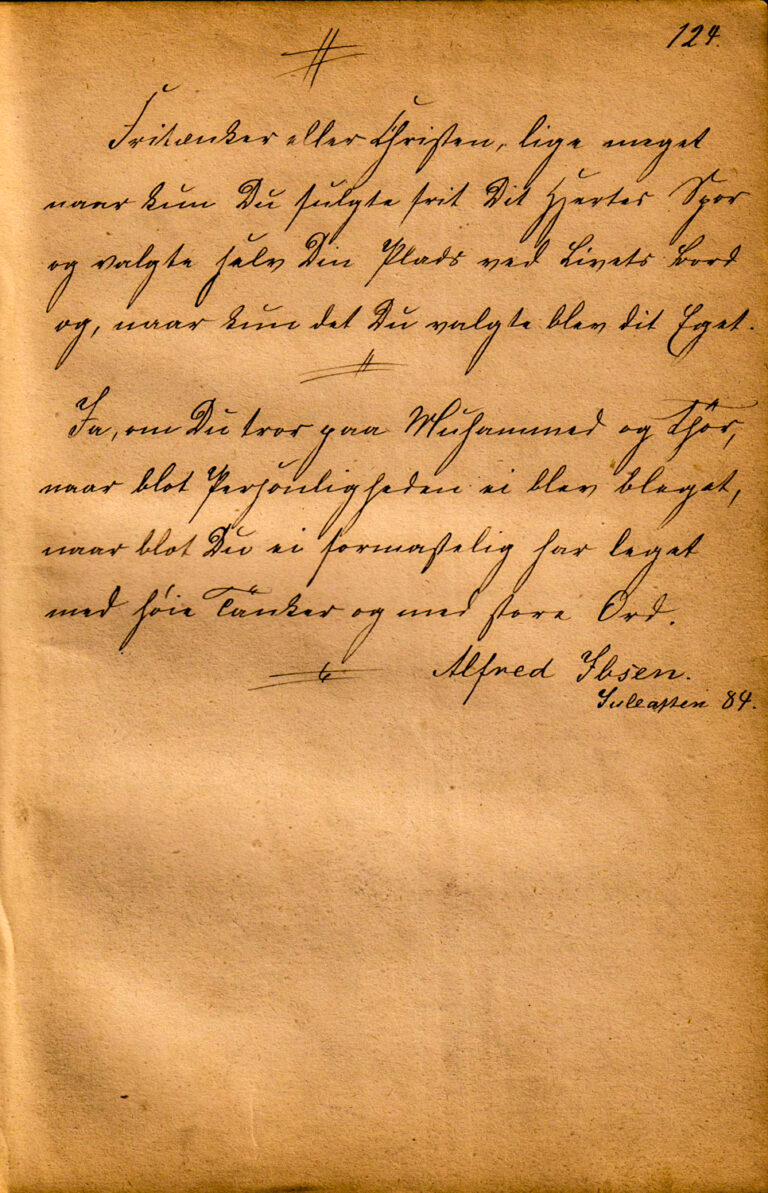 124.
Fritænker eller Christen, lige meget
naar kun Du fulgte frit Dit Hjertes Spor
og valgte selv Din Plads ved Livets Bord
og, naar kun det Du valgte blev dit Eget.
Ja, om Du tror paa Muhammed og Thor,
naar blot Personligheden ei blev bleget,
naar blot Du ei formastelig har leget
med høie Tanker og med store Ord.
Alfred Ibsen.
Juleaften 84.